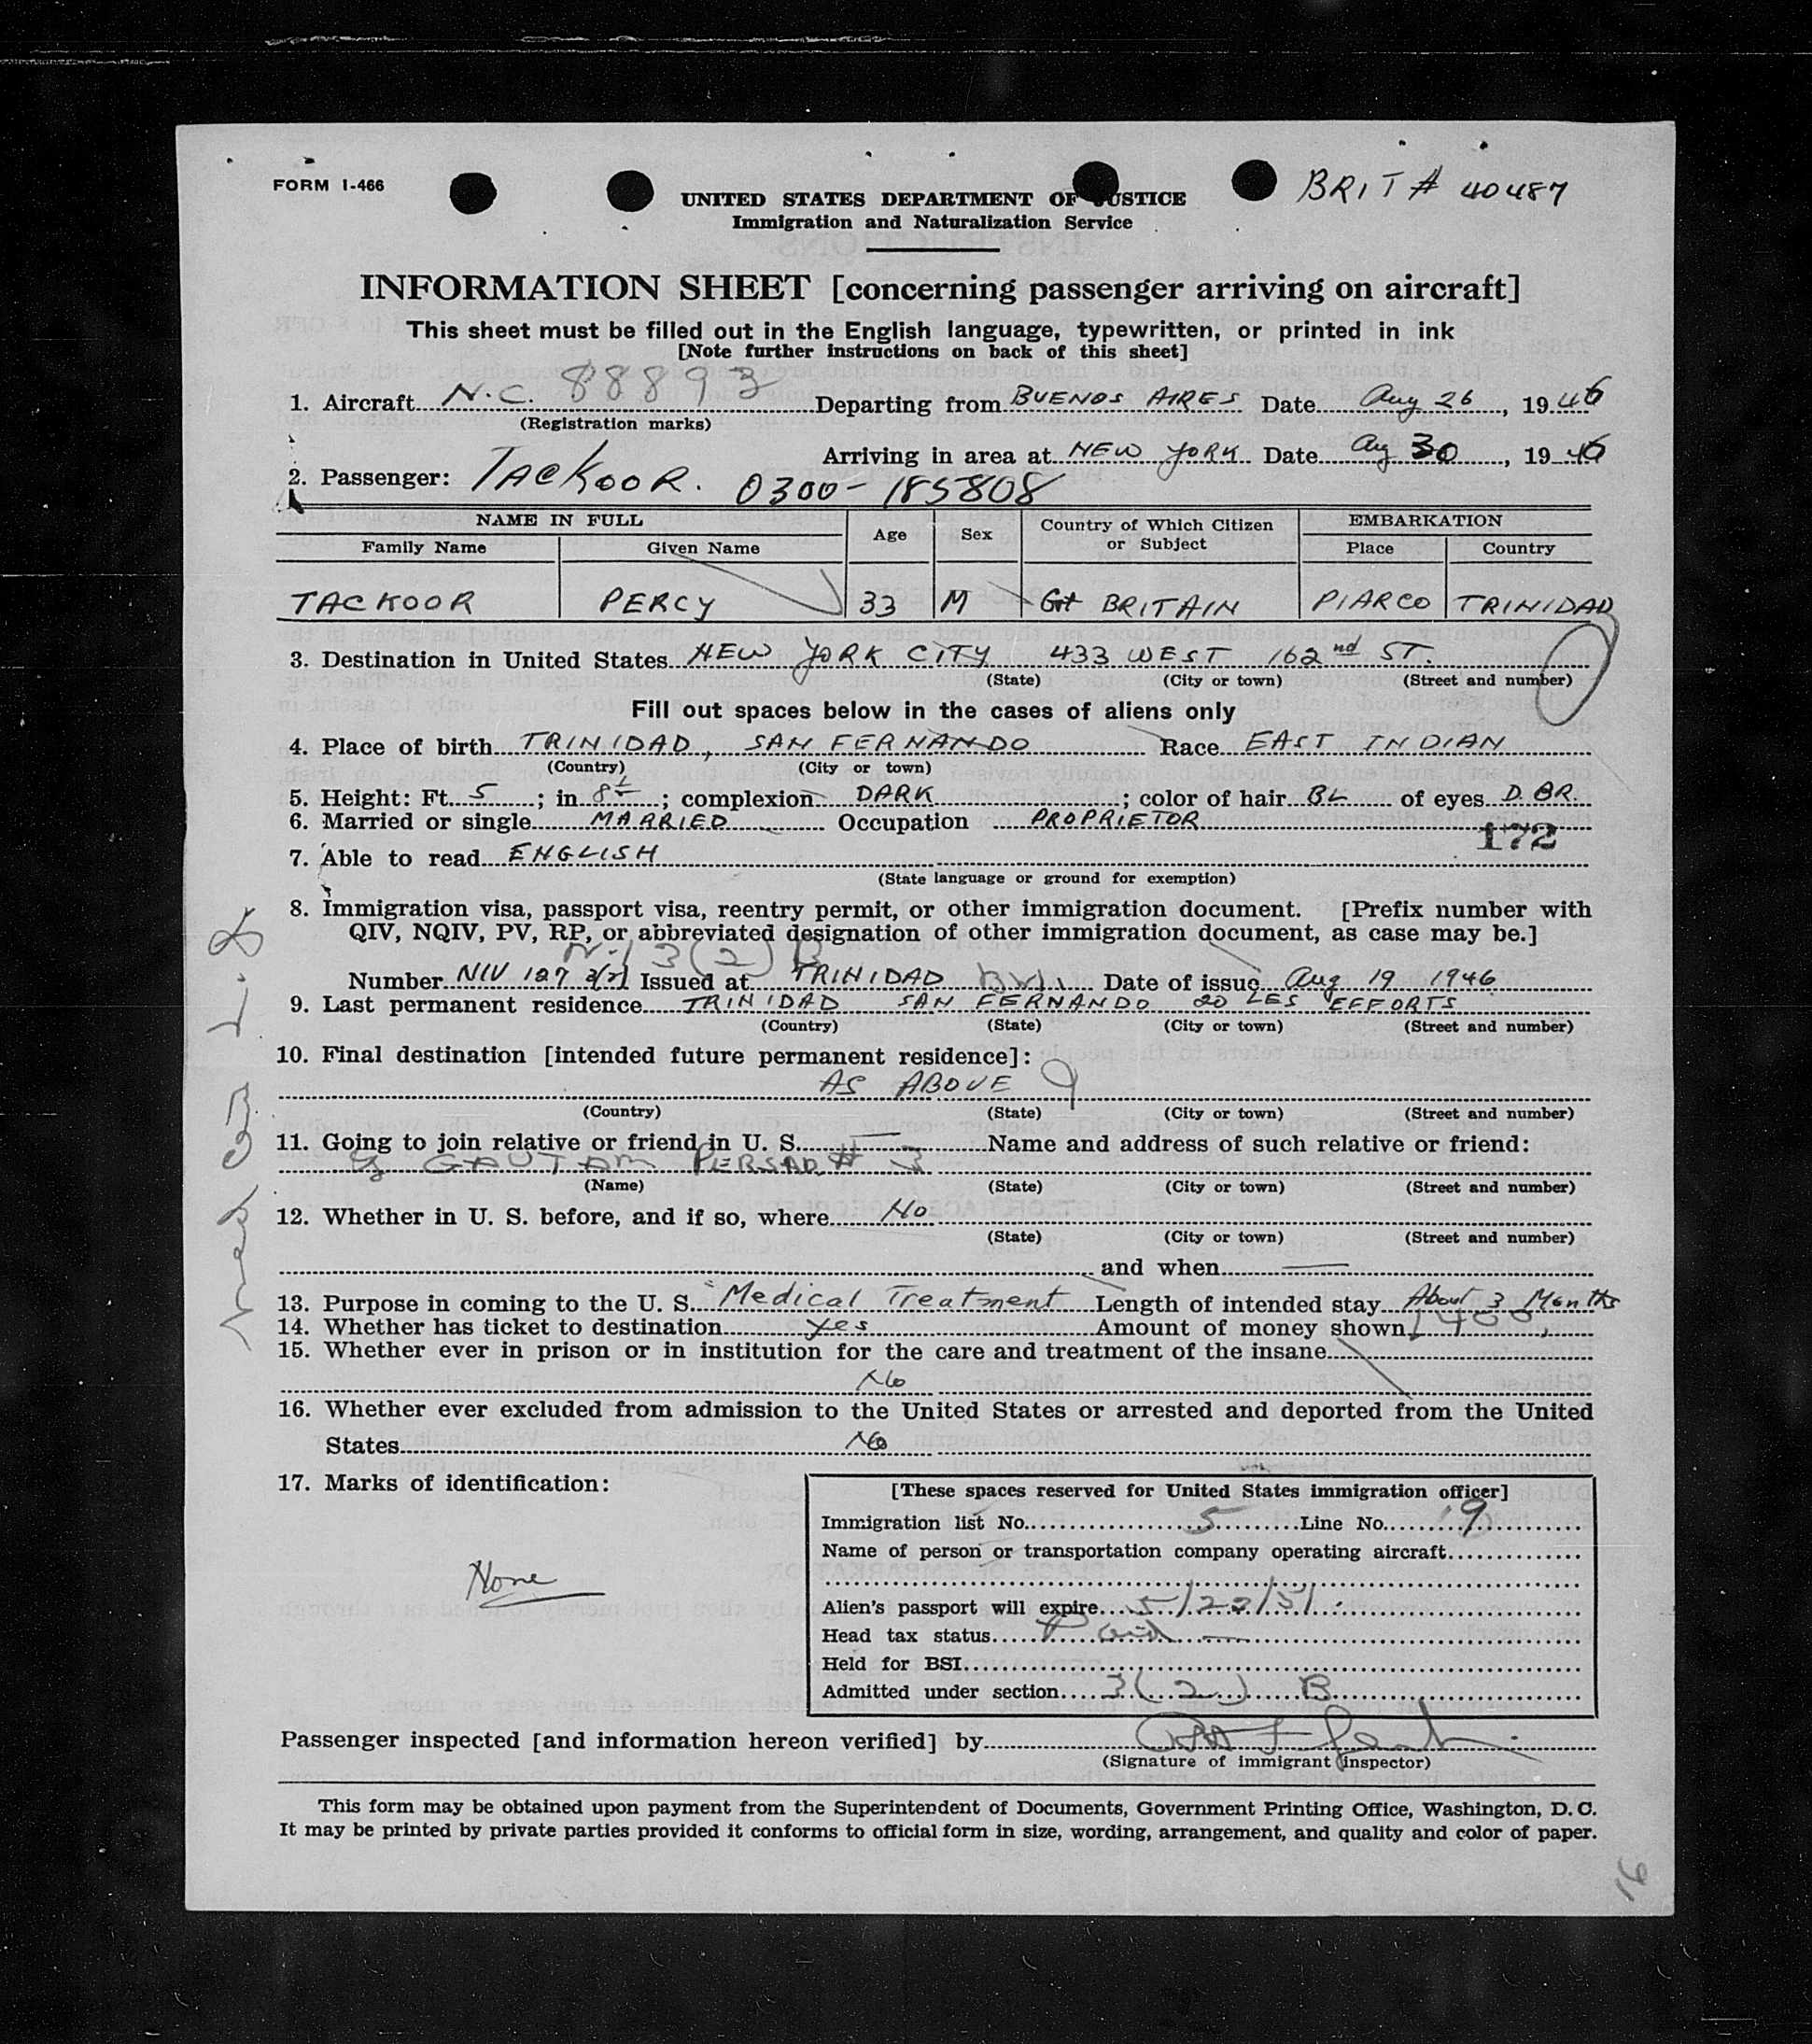 FORM I-466
BRIT # 40487
UNITED STATES DEPARTMENT OF JUSTICE
Immigration and Naturalization Service
INFORMATION SHEET [concerning passenger arriving on aircraft]
This sheet must be filled out in the English language, typewritten, or printed in ink
[Note further instructions on back of this sheet]
1. Aircraft N.C. 88893 Departing from BUENOS AIRES Date Aug 26, 1946
(Registration marks)
Arriving in area at NEW YORK Date Aug 30, 1946
2. Passenger: TACKOOR. 0300-185808
NAME IN FULL Age Sex Country of Which Citizen or Subject EMBARKATION
Family Name Given Name Place Country
TACKOOR PERCY 33 M Gt BRITAIN PIARCO TRINIDAD
3. Destination in United States NEW YORK CITY 433 WEST 162nd ST.
(State) (City or town) (Street and number)
Fill out spaces below in the cases of aliens only
4. Place of birth TRINIDAD, SAN FERNANDO Race EAST INDIAN
(Country) (City or town)
5. Height: Ft. 5; in 8; complexion DARK; color of hair BL of eyes D. BR.
6. Married or single MARRIED Occupation PROPRIETOR
172
7. Able to read ENGLISH
(State language or ground for exemption)
8. Immigration visa, passport visa, reentry permit, or other immigration document. [Prefix number with
QIV, NQIV, PV, RP, or abbreviated designation of other immigration document, as case may be.]
3(2) B
Number NIV 127 3(2) Issued at TRINIDAD BWI Date of issue Aug 19 1946
9. Last permanent residence TRINIDAD SAN FERNANDO 20 LES EFFORTS
(Country) (State) (City or town) (Street and number)
10. Final destination [intended future permanent residence]:
AS ABOVE
(Country) (State) (City or town) (Street and number)
11. Going to join relative or friend in U. S. — Name and address of such relative or friend:
GAUTAM PERSAD # 3
(Name) (State) (City or town) (Street and number)
12. Whether in U. S. before, and if so, where No
(State) (City or town) (Street and number)
and when —
13. Purpose in coming to the U. S. Medical Treatment Length of intended stay About 3 Months
14. Whether has ticket to destination Yes Amount of money shown
15. Whether ever in prison or in institution for the care and treatment of the insane
No
16. Whether ever excluded from admission to the United States or arrested and deported from the United
States No
17. Marks of identification:
None
[These spaces reserved for United States immigration officer]
Immigration list No. 5 Line No. 9
Name of person or transportation company operating aircraft
Alien's passport will expire 5/22/51
Head tax status Paid —
Held for BSI
Admitted under section 3(2) B
Passenger inspected [and information hereon verified] by
(Signature of immigrant inspector)
This form may be obtained upon payment from the Superintendent of Documents, Government Printing Office, Washington, D. C.
It may be printed by private parties provided it conforms to official form in size, wording, arrangement, and quality and color of paper.
16